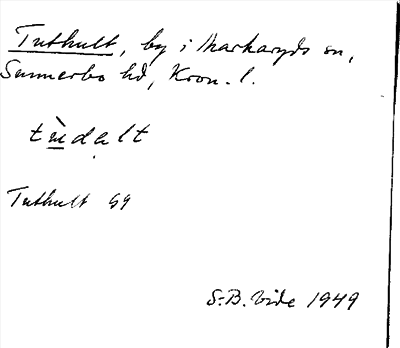 Tuthult, by i Markaryds sn,
Sunnerbo hd, Kron. l.
tùdalt
Tuthult G9
S-B. Vide 1949